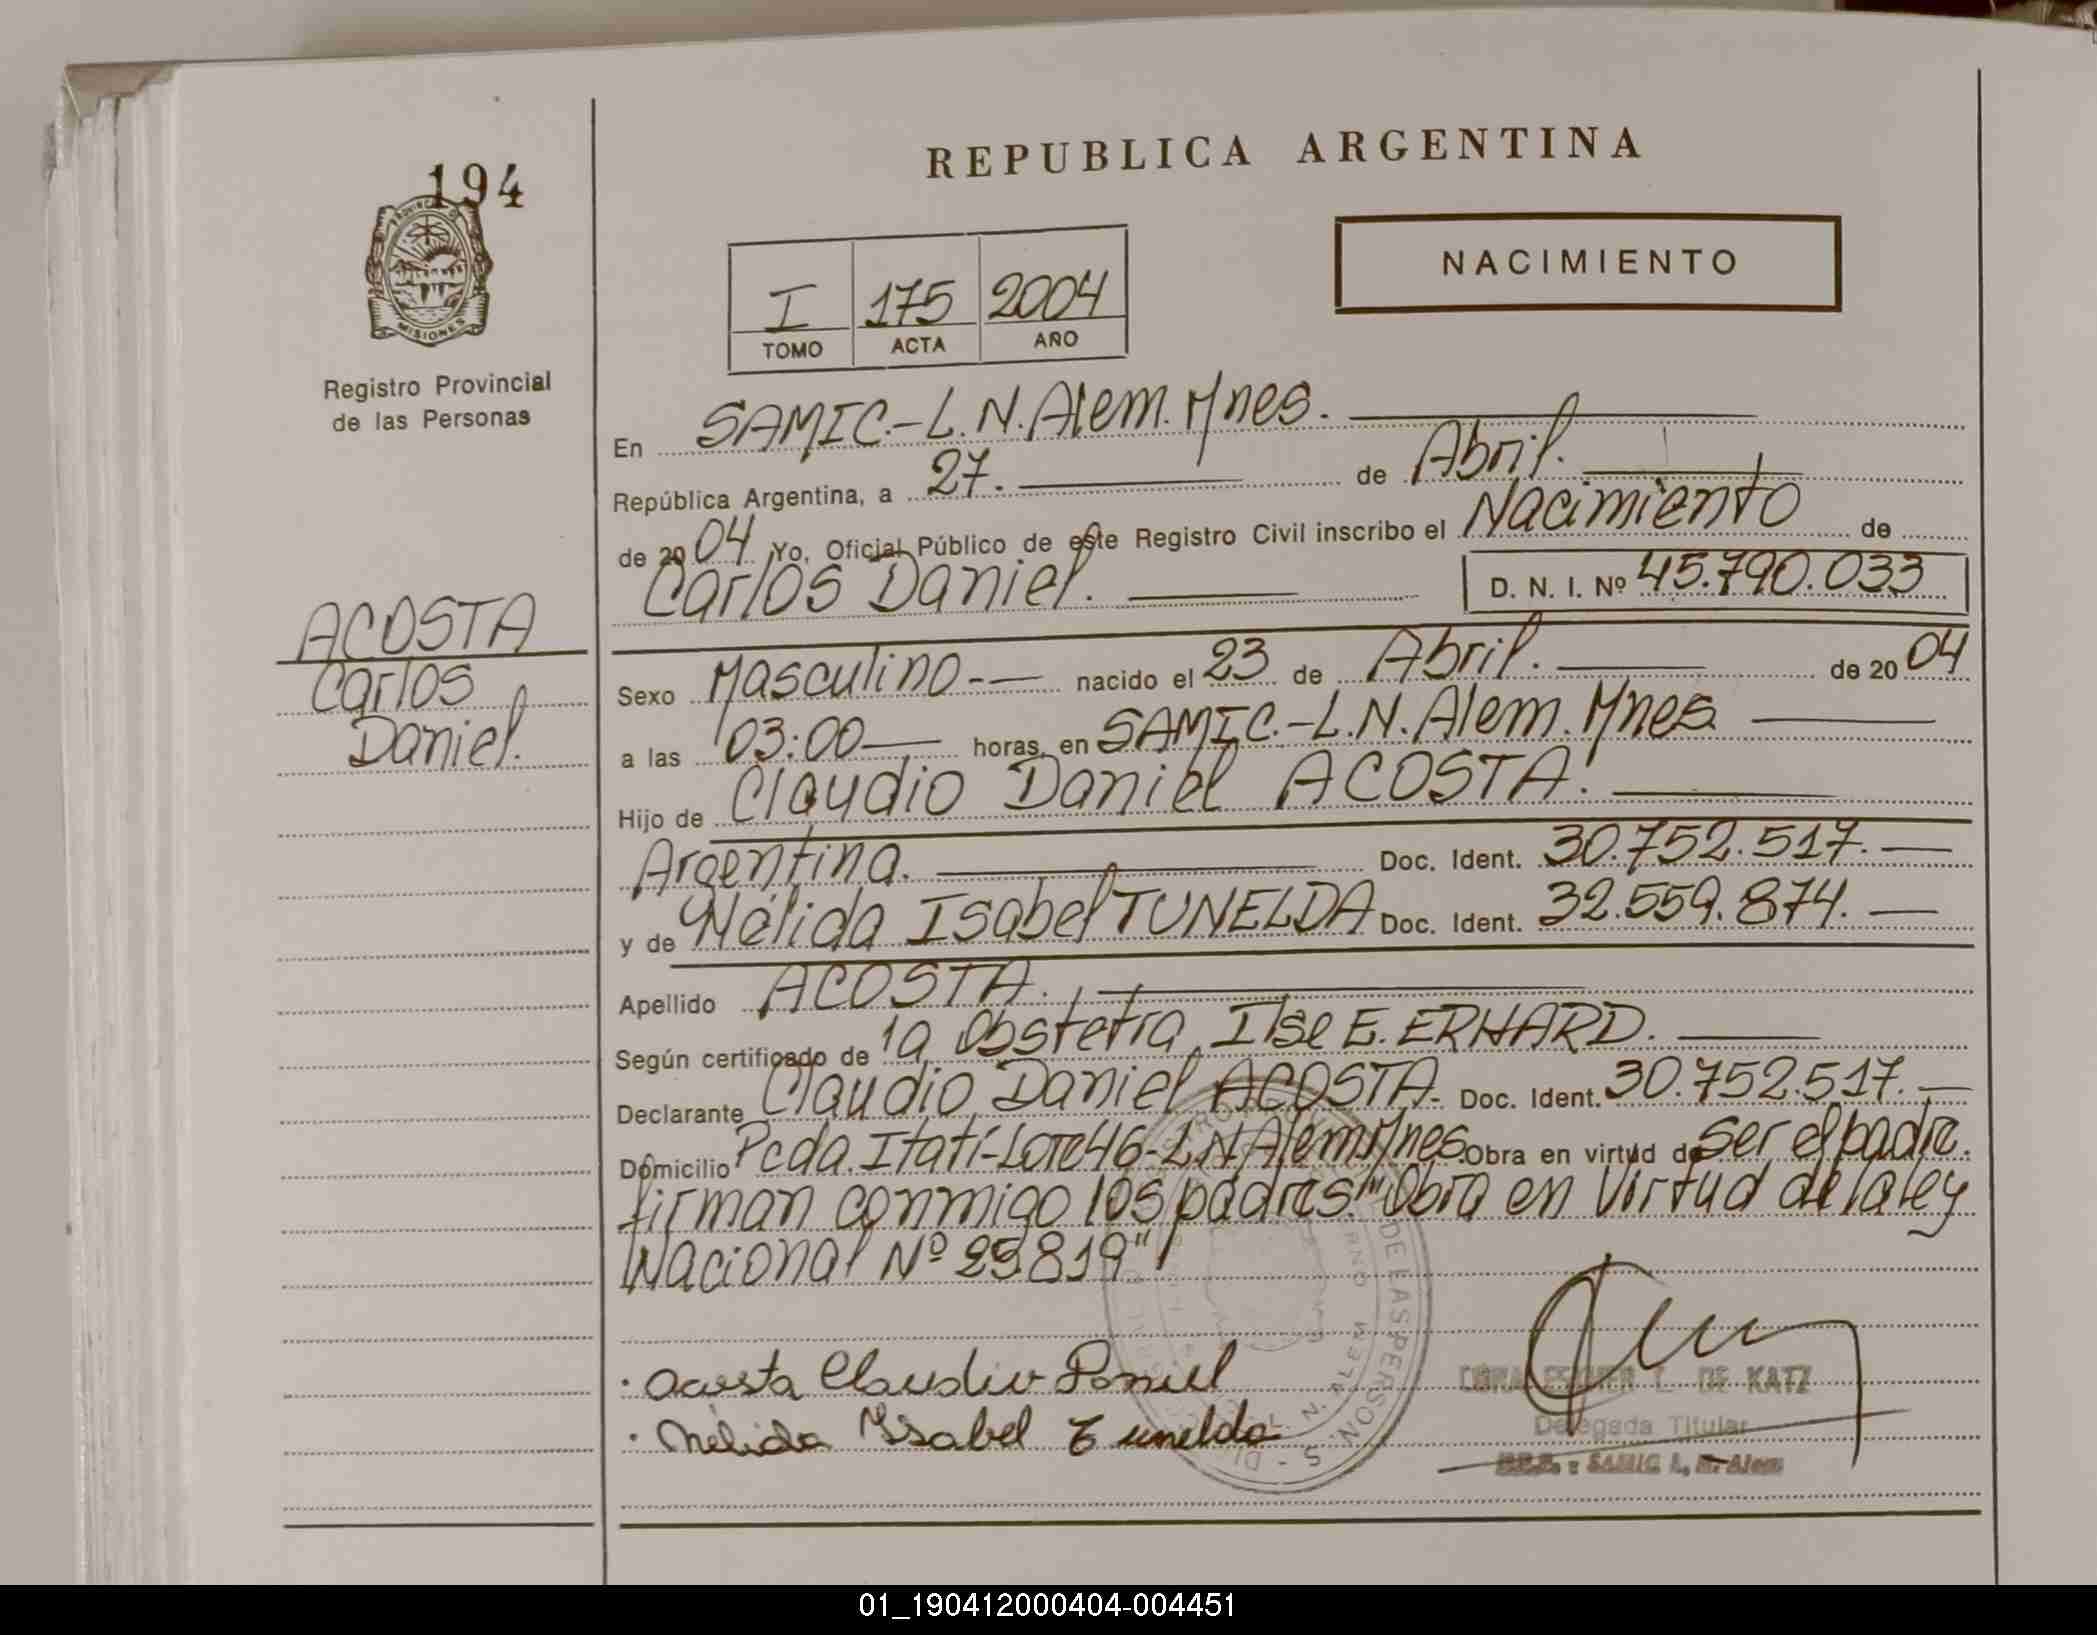 194
PROVINCIA DE
MISIONES
Registro Provincial
de las Personas
REPUBLICA ARGENTINA
NACIMIENTO
I 175 2004
TOMO ACTA AÑO
En SAMIC.-L.N.Alem.Mnes.
República Argentina, a 27. de Abril.
de 2004 Yo, Oficial Público de este Registro Civil inscribo el Nacimiento de
Carlos Daniel. D. N. I. Nº 45.790.033
ACOSTA
Carlos
Daniel.
Sexo Masculino-- nacido el 23 de Abril. de 2004
a las 03:00 horas, en SAMIC.-L.N.Alem.Mnes
Hijo de Claudio Daniel ACOSTA.
Argentina. Doc. Ident. 30.752.517.
y de Nélida Isabel TUNELDA Doc. Ident. 32.559.874.
Apellido ACOSTA.
Según certificado de la Obstetra Ilse E. ERHARD.
Declarante Claudio Daniel ACOSTA- Doc. Ident. 30.752.517.
Domicilio Pcda. Itatí-Lote46-L.N.Alem.Mnes. Obra en virtud de Ser el padre.
firman conmigo los padres. "Obra en Virtud de la ley
Nacional Nº 25819"
Acosta Claudio Daniel
Nélida Isabel Tunelda
DE LAS PERSONAS
L. N. ALEM
DE KATZ
Delegada Titular
SAMIC L. N. Alem
01_190412000404-004451